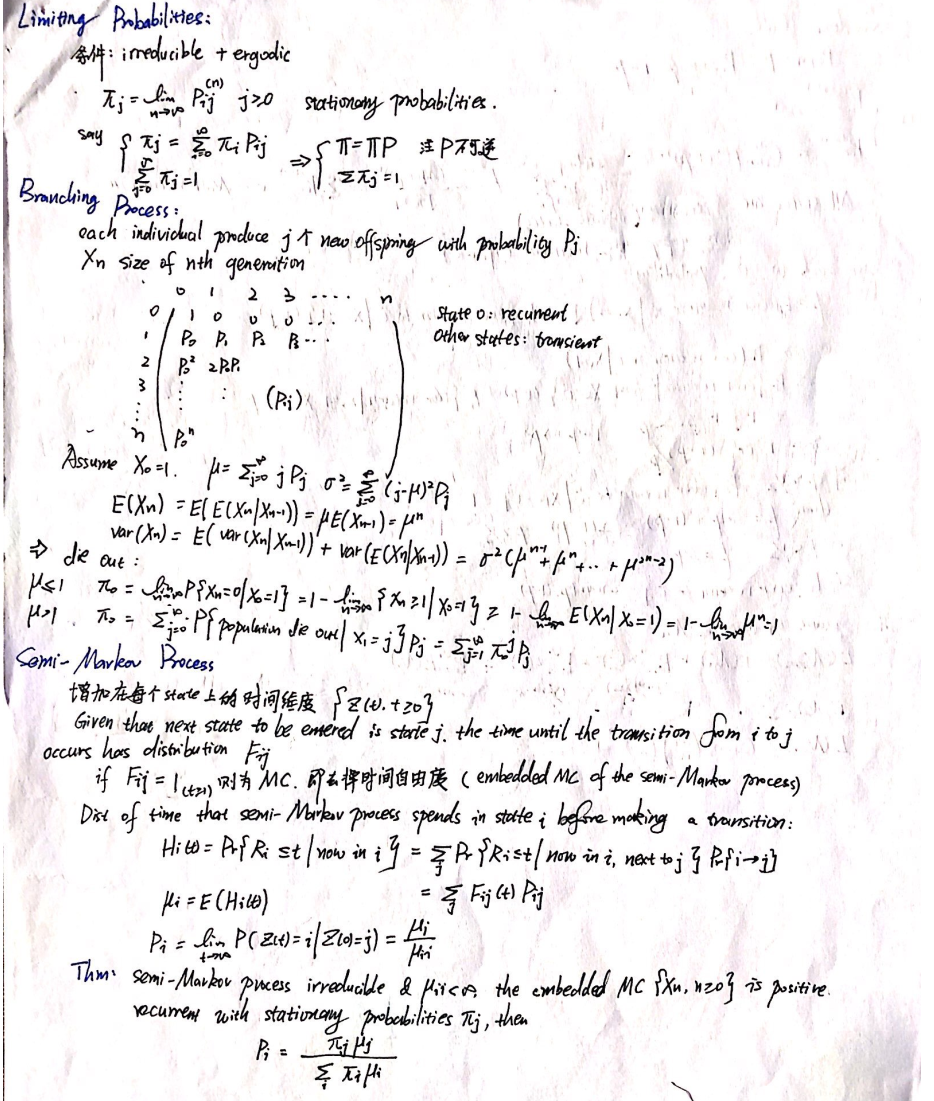 Limiting Probabilities:
条件: irreducible + ergodic
π_j = lim_{n→∞} P_{ij}^{(n)}  j≥0  stationary probabilities.
say { π_j = Σ_{i=0}^∞ π_i P_{ij}  ⇒ { Π = ΠP  注 P不可逆
Σ_{j=0}^∞ π_j = 1  Σπ_j = 1
Branching Process:
each individual produce j 个 new offspring with probability P_j
X_n size of nth generation
0 1 2 3 ···· n
0 1 0 0 0 ···  State 0: recurrent
1 P_0 P_1 P_2 P_3 ···  Other states: transient
2 P_0² 2P_0P_1
3 ⋮ ⋮ (P_{ij})
⋮
n P_0^n
Assume X_0=1. μ = Σ_{j=0}^∞ j P_j  σ² = Σ_{j=0}^∞ (j-μ)² P_j
E(X_n) = E(E(X_n|X_{n-1})) = μE(X_{n-1}) = μ^n
var(X_n) = E(var(X_n|X_{n-1})) + var(E(X_n|X_{n-1})) = σ²(μ^{n-1} + μ^n + ... + μ^{2n-2})
⇒ die out:
μ≤1  π_0 = lim_{n→∞} P{X_n=0|X_0=1} = 1 - lim_{n→∞} {X_n≥1|X_0=1} ≥ 1 - lim_{n→∞} E(X_n|X_0=1) = 1 - lim_{n→∞} μ^n = 1
μ>1  π_0 = Σ_{j=0}^∞ P{population die out | X_1=j} P_j = Σ_{j=1}^∞ π_0^j P_j
Semi-Markov Process
增加在每个 state 上的时间维度 {Z(t), t≥0}
Given that next state to be entered is state j, the time until the transition from i to j
occurs has distribution F_{ij}
if F_{ij} = 1_{(t≥1)} 则有 MC. 即去掉时间自由度 (embedded MC of the semi-Markov process)
Dist of time that semi-Markov process spends in state i before making a transition:
H_i(t) = Pr{R_i ≤ t | now in i} = Σ_j Pr{R_i ≤ t | now in i, next to j} Pr{i→j}
= Σ_j F_{ij}(t) P_{ij}
μ_i = E(H_i(t))
P_i = lim_{t→∞} P(Z(t)=i|Z(0)=j) = μ_i/μ_{ii}
Thm: semi-Markov process irreducible & μ_{ii}<∞, the embedded MC {X_n, n≥0} is positive
recurrent with stationary probabilities π_j, then
P_i = π_j μ_j / Σ_i π_i μ_i